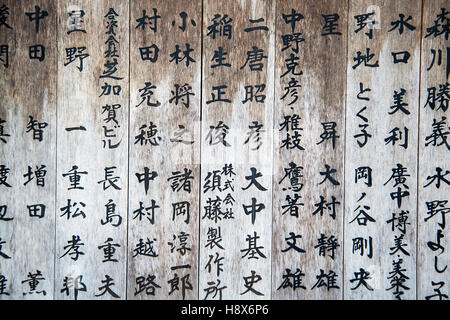 森川勝義 水野よし子
水口美利 廣中博美・
野地とく子 岡ノ谷剛央
星昇 大村静雄
中野克彦 雅枝 鷹箸文雄
二唐昭彦 大中基史
稲生正俊 株式会社 須藤製作所
小林将之 諸岡淳一郎
村田充穂 中村越路
合名会社芝加賀ビル 長島重夫
星野一 重松孝邦
中田智 増田薫
alamy
H8X6P6
www.alamy.com